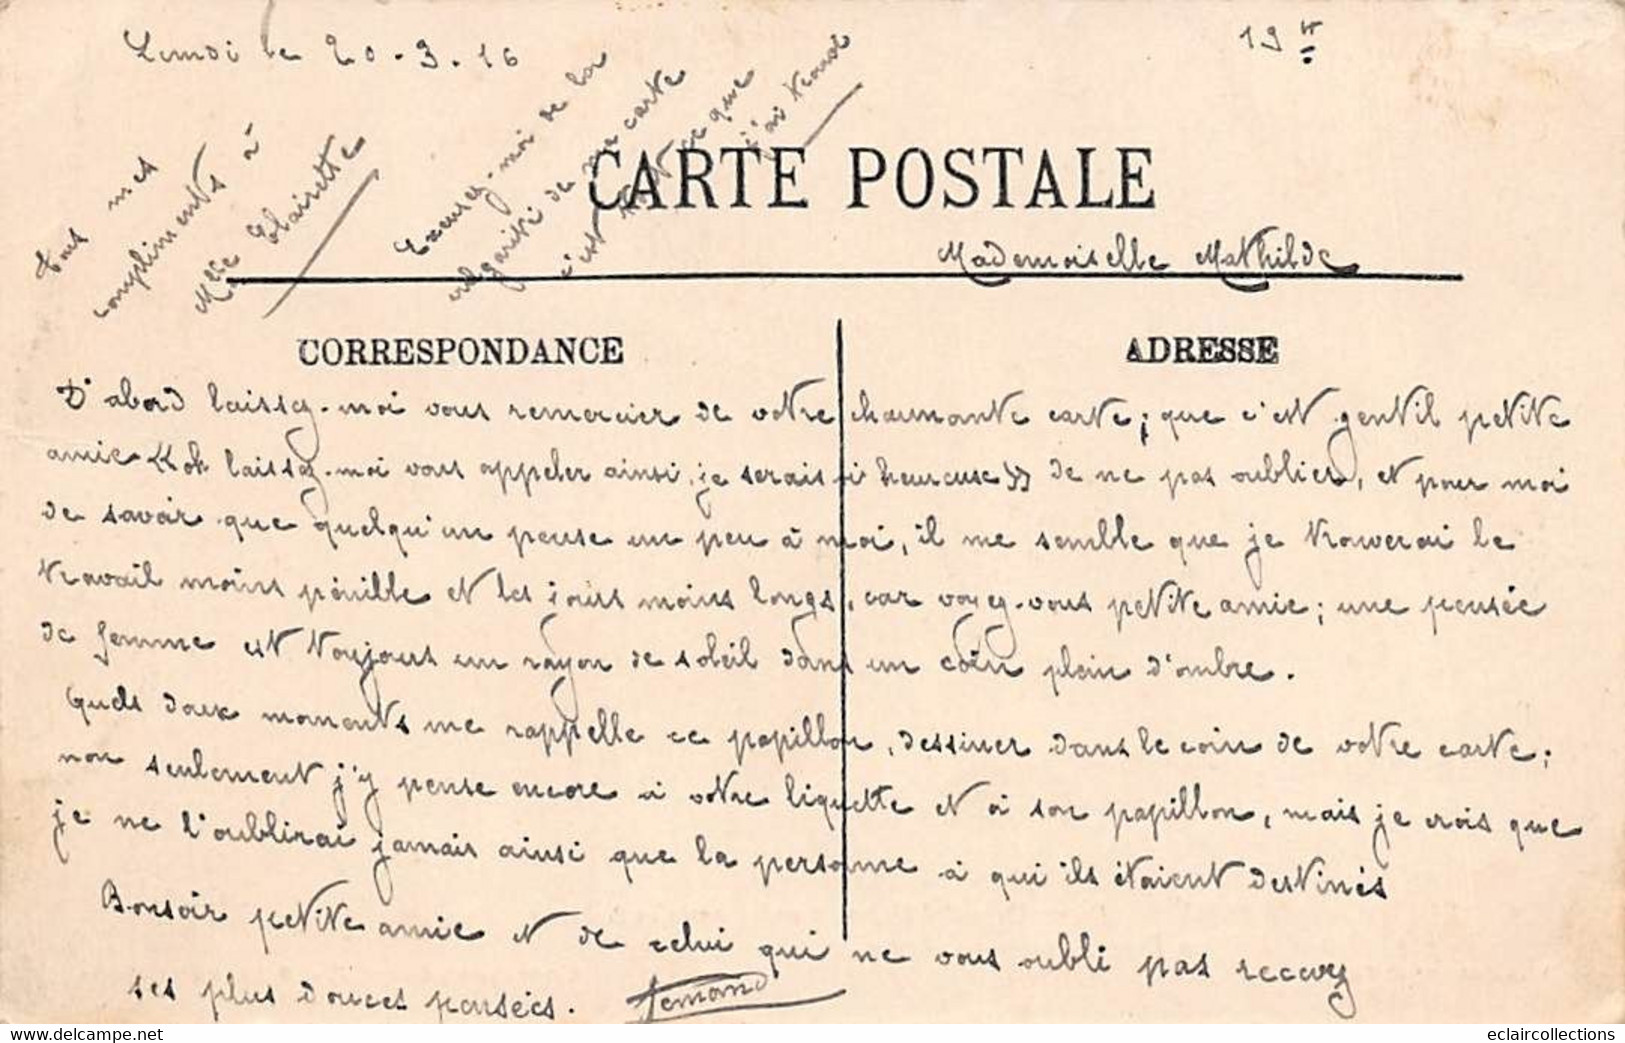 Lundi le 20-3-16
19 H
Tous mes
compliments à
Mlle Clairette
Excusez-moi de la
vulgarité de ma carte
c'est tout ce que
j'ai trouvé
CARTE POSTALE
Mademoiselle Mathilde
CORRESPONDANCE
ADRESSE
D'abord laissez-moi vous remercier de votre charmante carte; que c'est gentil petite
amie "(oh laissez-moi vous appeler ainsi, je serais si heureuse)" de ne pas oublier, et pour moi
de savoir que quelqu'un pense un peu à moi, il me semble que je trouverai le
travail moins pénible et les jours moins longs, car voyez-vous petite amie; une pensée
de femme est toujours un rayon de soleil dans un coin plein d'ombre.
Quels doux moments me rappelle ce papillon, dessiner dans le coin de votre carte;
non seulement j'y pense encore à votre liquette et à son papillon, mais je crois que
je ne l'oublirai jamais ainsi que la personne à qui ils étaient destinés
Bonsoir petite amie et de celui qui ne vous oubli pas recevez
ses plus douces pensées. Fernand
eclaircollections